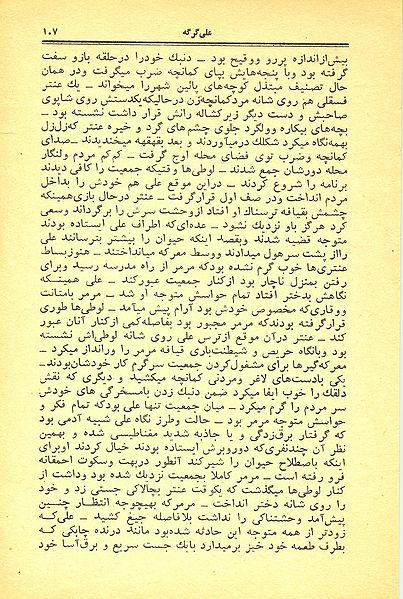 علی گرگه ۱۰۷
بیش‌ازاندازه پررو ووقیح بود ــ دنبك خودرا درحلقه بازو سفت
گرفته بود وبا پنجه‌هایش بپای کمانچه ضرب میگرفت ودر همان
حال تصنیف مبتذل کوچه‌های پائین شهررا میخواند ــ یك عنتر
فسقلی هم روی شانه مردکمانچه‌زن درحالیکه‌یکدستش روی شاپوی
صاحبش و دست دیگر زیرکشاله رانش قرار داشت نشسته بود ــ
بچه‌های بیکاره وولگرد جلوی چشم‌های گرد و خیره عنترکه‌زل‌زل
بهمه‌نگاه میکرد شکلك درمیآوردند و بعد بقهقهه میخندیدند ــ‌صدای
کمانچه وضرب توی فضای محله اوج گرفت ــ کم‌کم مردم ولنگار
محله دورشان جمع شدند ــ لوطی‌ها وقتیکه جمعیت را کافی دیدند
برنامه را شروع کردند ــ دراین موقع علی هم خودش را بداخل
مردم انداخت ودر صف اول قرارگرفت ــ عنتر درحال بازی‌همینکه
چشمش بقیافه ترسناك او افتاد ازوحشت سرش را برگرداند وسعی
کرد هرگز باو نزدیك نشود ــ عده‌ای‌که اطراف علی ایستاده بودند
متوجه قضیه شدند وبقصد اینکه حیوان را بیشتر بترسانند علی
رااز پشت سرهول میدادند ووسط معرکه میانداختند ــ هنوزبساط
عنتری‌ها خوب گرم نشده بودکه مرمر از راه مدرسه رسید وبرای
رفتن بمنزل ناچار بود ازکنار جمعیت عبورکند ــ علی همینکه
نگاهش بدختر افتاد تمام حواسش متوجه او شد ــ مرمر بامتانت
ووقاری‌که مخصوص خودش بود آرام پیش میآمد ــ لوطی‌ها طوری
قرارگرفته بودندکه مرمر مجبور بود بفاصله‌کمی ازکنار آنان عبور
کند ــ عنتر درآن موقع ازترس علی روی شانه لوطی‌اش نشسته
بود وبانگاه حریص و شیطنت‌باری قیافه مرمر را ورانداز میکرد ــ
معرکه‌گیرها برای مشغول‌کردن جمعیت سرگرم کار خودشان‌بودند‌ــ
یکی بادست‌های لاغر ومردنی کمانچه میکشید و دیگری که نقش
دلقك را خوب ایفا میکرد ضمن دنبك زدن بامسخرگی های خودش
سر مردم را گرم میکرد ــ میان جمعیت تنها علی بودکه تمام فکر و
حواسش متوجه مرمر بود ــ حالت وطرز نگاه علی شبیه آدمی بود
که گرفتار برق‌زدگی و یا جاذبه شدید مغناطیسی شده و بهمین
نظر آن چندنفری‌که دوروبرش ایستاده بودند خیال کردند اوبرای
اینکه باصطلاح حیوان را شیرکند آنطور دربهت وسکوت احمقانه
فرو رفته است ــ مرمر کاملا بجمعیت نزدیك شده بود وداشت از
کنار لوطی‌ها میگذشت که یکوقت عنتر بچالاکی جستی زد و خود
را روی شانه دختر انداخت ــ مرمرکه بهیچوجه انتظار چنین
پیش‌آمد وحشتناکی را نداشت بلافاصله جیغ کشید ــ علی‌که
زودتر از همه متوجه این حادثه شده‌بود مانند درنده چابکی که
بطرف طعمه خود خیز برمیدارد بایك جست سریع و برق‌آسا خود